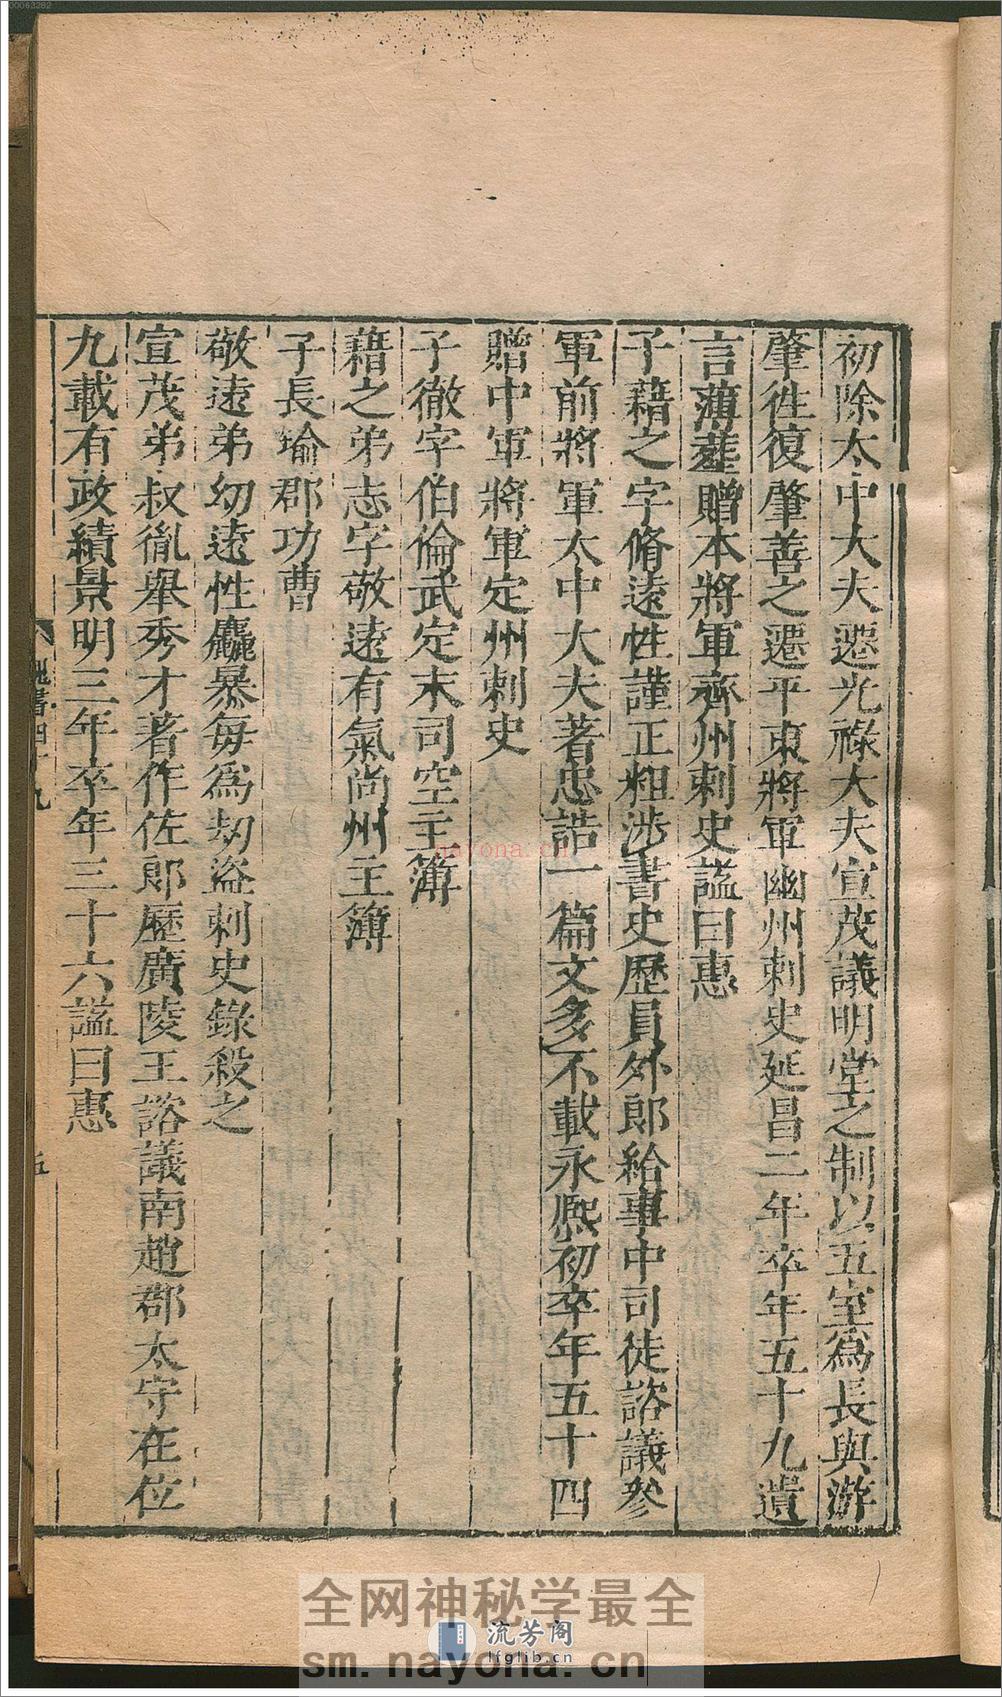 初除太中大夫遷光祿大夫宣茂議明堂之制以五室為長與游
肇往復肇善之遷平東將軍幽州刺史延昌二年卒年五十九遺
言薄塟贈本將軍齊州刺史謚曰惠
子籍之字脩遠性謹正粗涉書史歷員外郎給事中司徒諮議參
軍前將軍太中大夫著忠誥一篇文多不載永熙初卒年五十四
贈中軍將軍定州刺史
子徹字伯倫武定末司空主簿
藉之弟志字敬遠有氣尚州主簿
子長瑜郡功曹
敬遠弟幼遠性麤暴每為劫盜刺史錄殺之
宣茂弟叔胤舉秀才著作佐郎歷廣陵王諮議南趙郡太守在位
九載有政績景明三年卒年三十六謚曰惠
魏書四十九
五
00063282
nayona.cn
全网神秘学最全
流芳阁
lfglib.cn
sm.nayona.cn